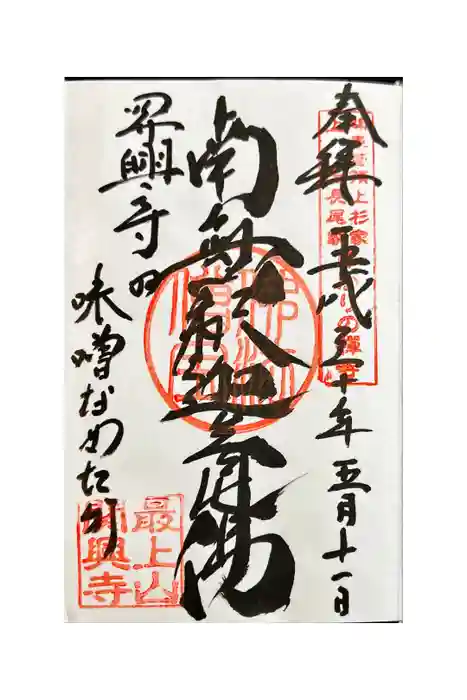 奉拝 平成三十年五月十一日
上杉家
長尾家
の禪寺
南無釈迦牟尼佛
関興寺の
味噌なめたか
最上山
關興寺